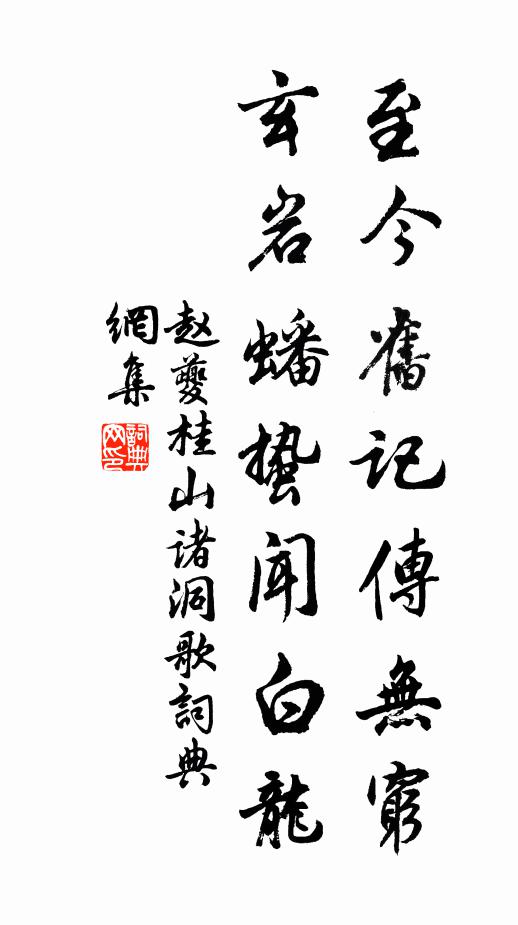 至今舊記傳無窮
玄岩蟠蟄聞白龍
赵夔桂山诸洞歌詞典
網集
詞典網印